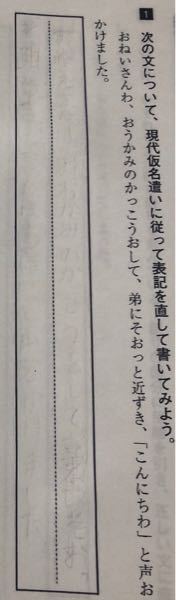 1 次の文について、現代仮名遣いに従って表記を直して書いてみよう。
おねいさんわ、おうかみのかっこうおして、弟にそおっと近ずき、「こんにちわ」と声お
かけました。